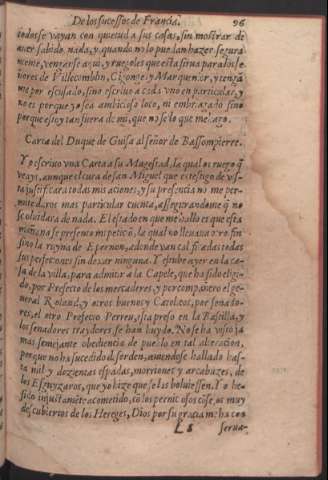 De los sucessos de Francia. 96
todos se vayan con quietud a sus casas, sin mostrar de
auer sabido nada, y quando no lo puedan hazer segura
mente, vengarse aqui, y ruegoles que esta sirua para los se
ñores de Villecomblin, Cigongne y Marquenor, y tengã
me por escusado, sino escriuo a cada vno en particular, y
no es porque yo sea ambicioso loco, ni embriagado sino
porque estoy tan fuera de mi, que no se lo que me hago.
Carta del Duque de Guisa al señor de Bassompierre.
Yo escriuo vna Carta a su Magestad, la qual os ruego q̃
veays, aunque el cura de san Miguel que es testigo de vis-
ta justificara todas mis aciones, y su presencia no me per-
mite daros mas particular cuenta, assegirandome q̃ no
se oluidara de nada. El estado en que me hallo es que esta
mañana se presento mi peticiõ, la qual no lleuaua otro fin
sino la ruyna de Epernon, adonde van calificadas todas
sus perfeciones sin dexar ninguna. Y estube ayer en la ca-
sa de la villa, para admitir a la Capele, que ha sido elegi-
do, por Prefecto de los mercaderes, y por compañero el ge-
neral Roland, y otros buenos y Catolicos, por senato-
res, el otro Prefecto Perreu, esta preso en la Bastilla, y
los senadores traydores se han huydo. No se ha visto ja
mas semejante obediencia de pueblo en tal alteracion,
porque no ha sucedido desorden, auiendose hallado has-
ta mil y dozientas espadas, morriones y arcabuzes, de
los Esguyzaros, que yo hize que se las boluiessen. Yo he
sido injustamẽte acometido, cõ los perniciosos cõsejos muy
descubiertos de los Hereges, Dios por su gracia me ha con
Ls serua-